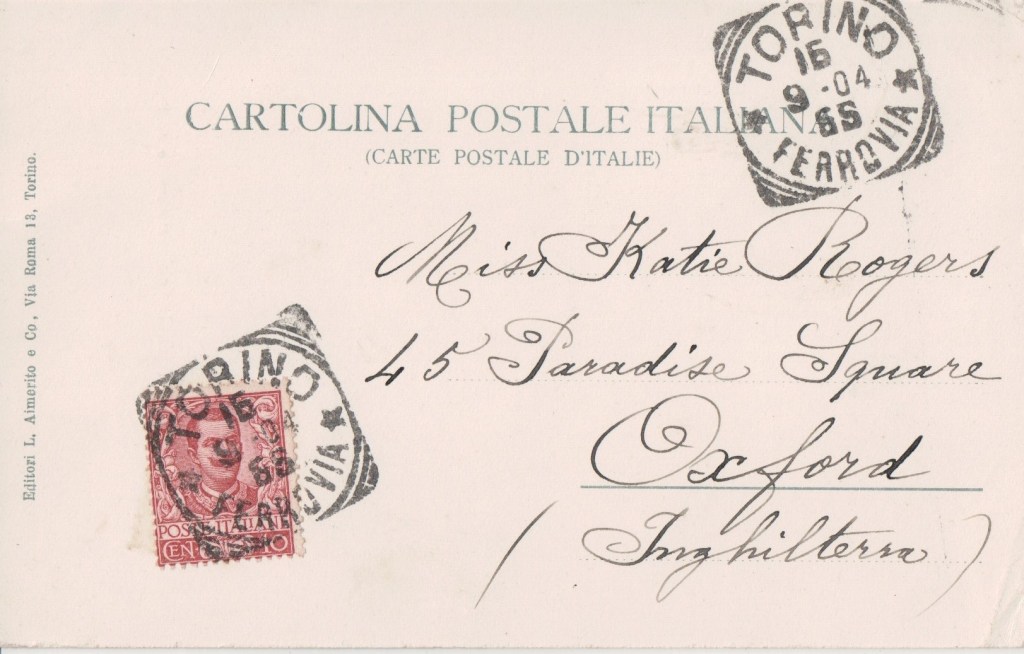 CARTOLINA POSTALE ITALIANA
(CARTE POSTALE D'ITALIE)
TORINO
16
9-04
FERROVIA
Miss Katie Rogers
45 Paradise Square
Oxford
(Inghilterra)
Editori L. Aimorito e Co, Via Roma 13, Torino.
TORINO
16
FERROVIA